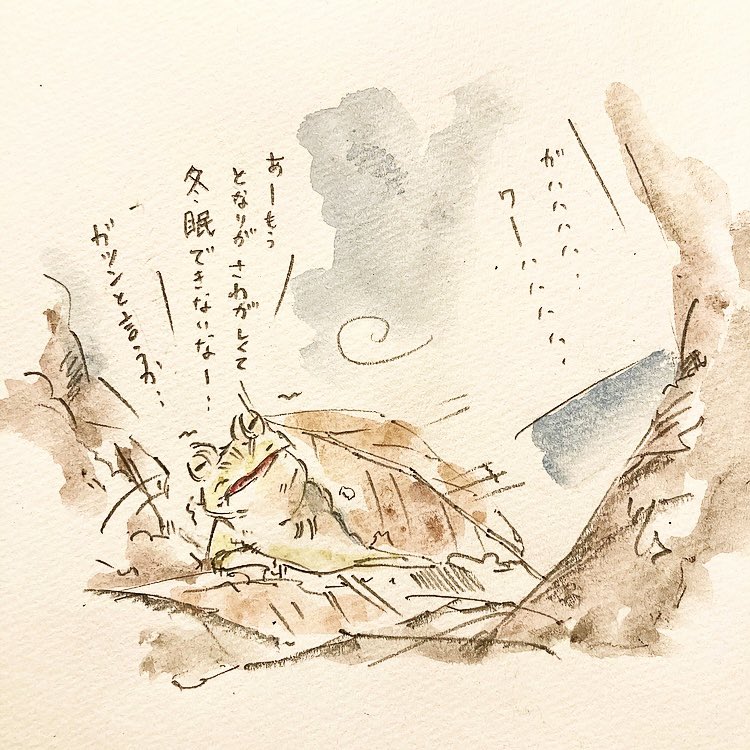 ガハハハハ、
ワーハハハハ、
あーもう
となりがさわがしくて
冬眠できないなー・・
ガツンと言うか・・